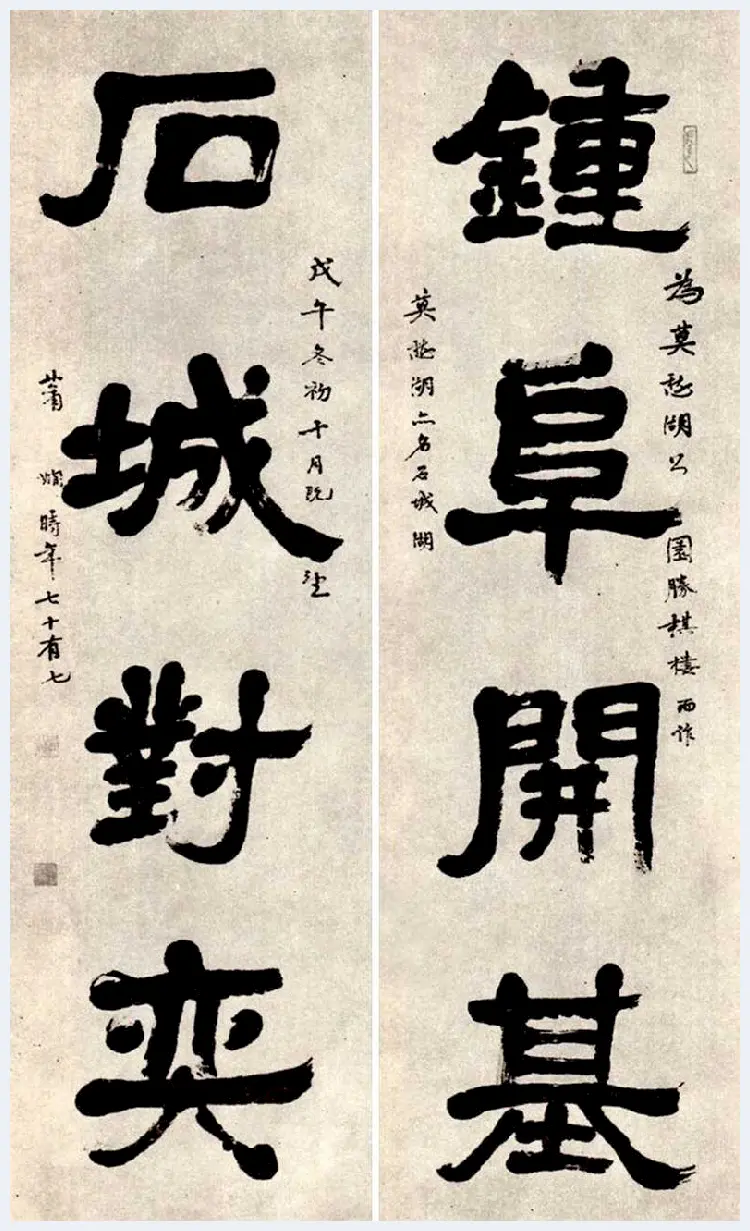 鍾阜開基
為莫愁湖公園勝棋樓而作
莫愁湖亦名石城湖
石城對弈
戊午冬初十月既望
蕭嫻時年七十有七